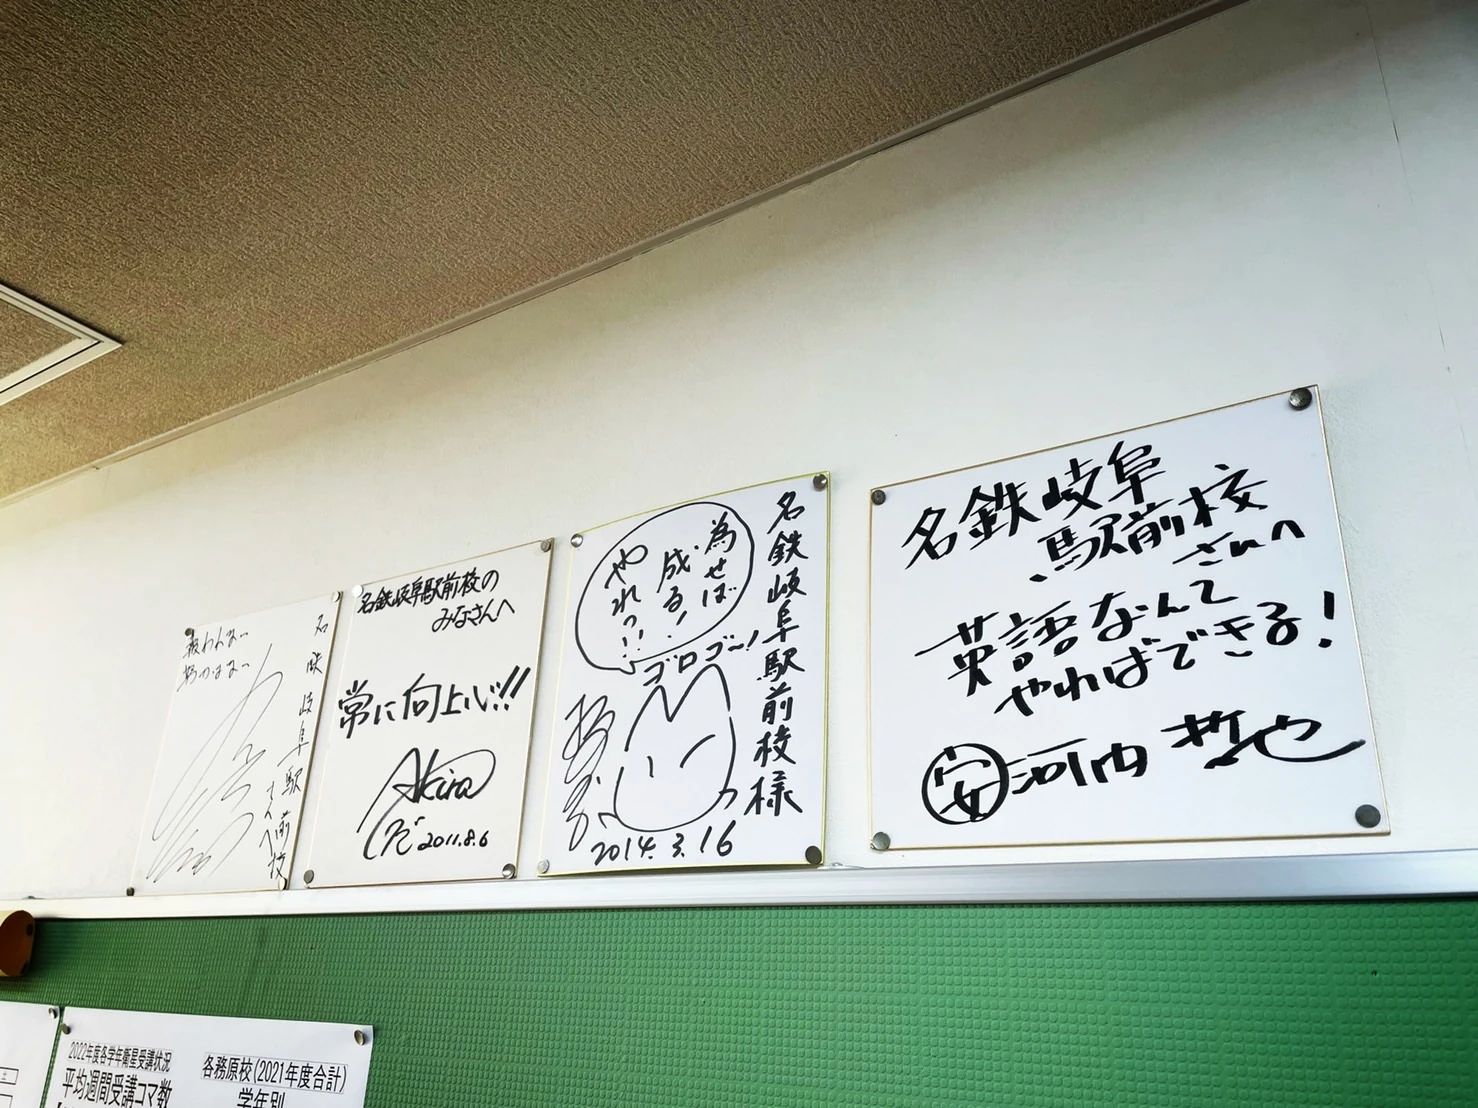 名鉄岐阜駅前校
さんへ
名鉄岐阜駅前校の
みなさんへ
常に向上心!!
Akira
2011.8.6
名鉄岐阜駅前校様
為せば
成る!
やれっ!!
ゴロゴ〜!
2014.3.16
名鉄岐阜
駅前校
さんへ
英語なんて
やればできる!
安河内 哲也
2022年度各学年衛星受講状況
平均週間受講コマ数
各務原校(2021年度合計)
学年別